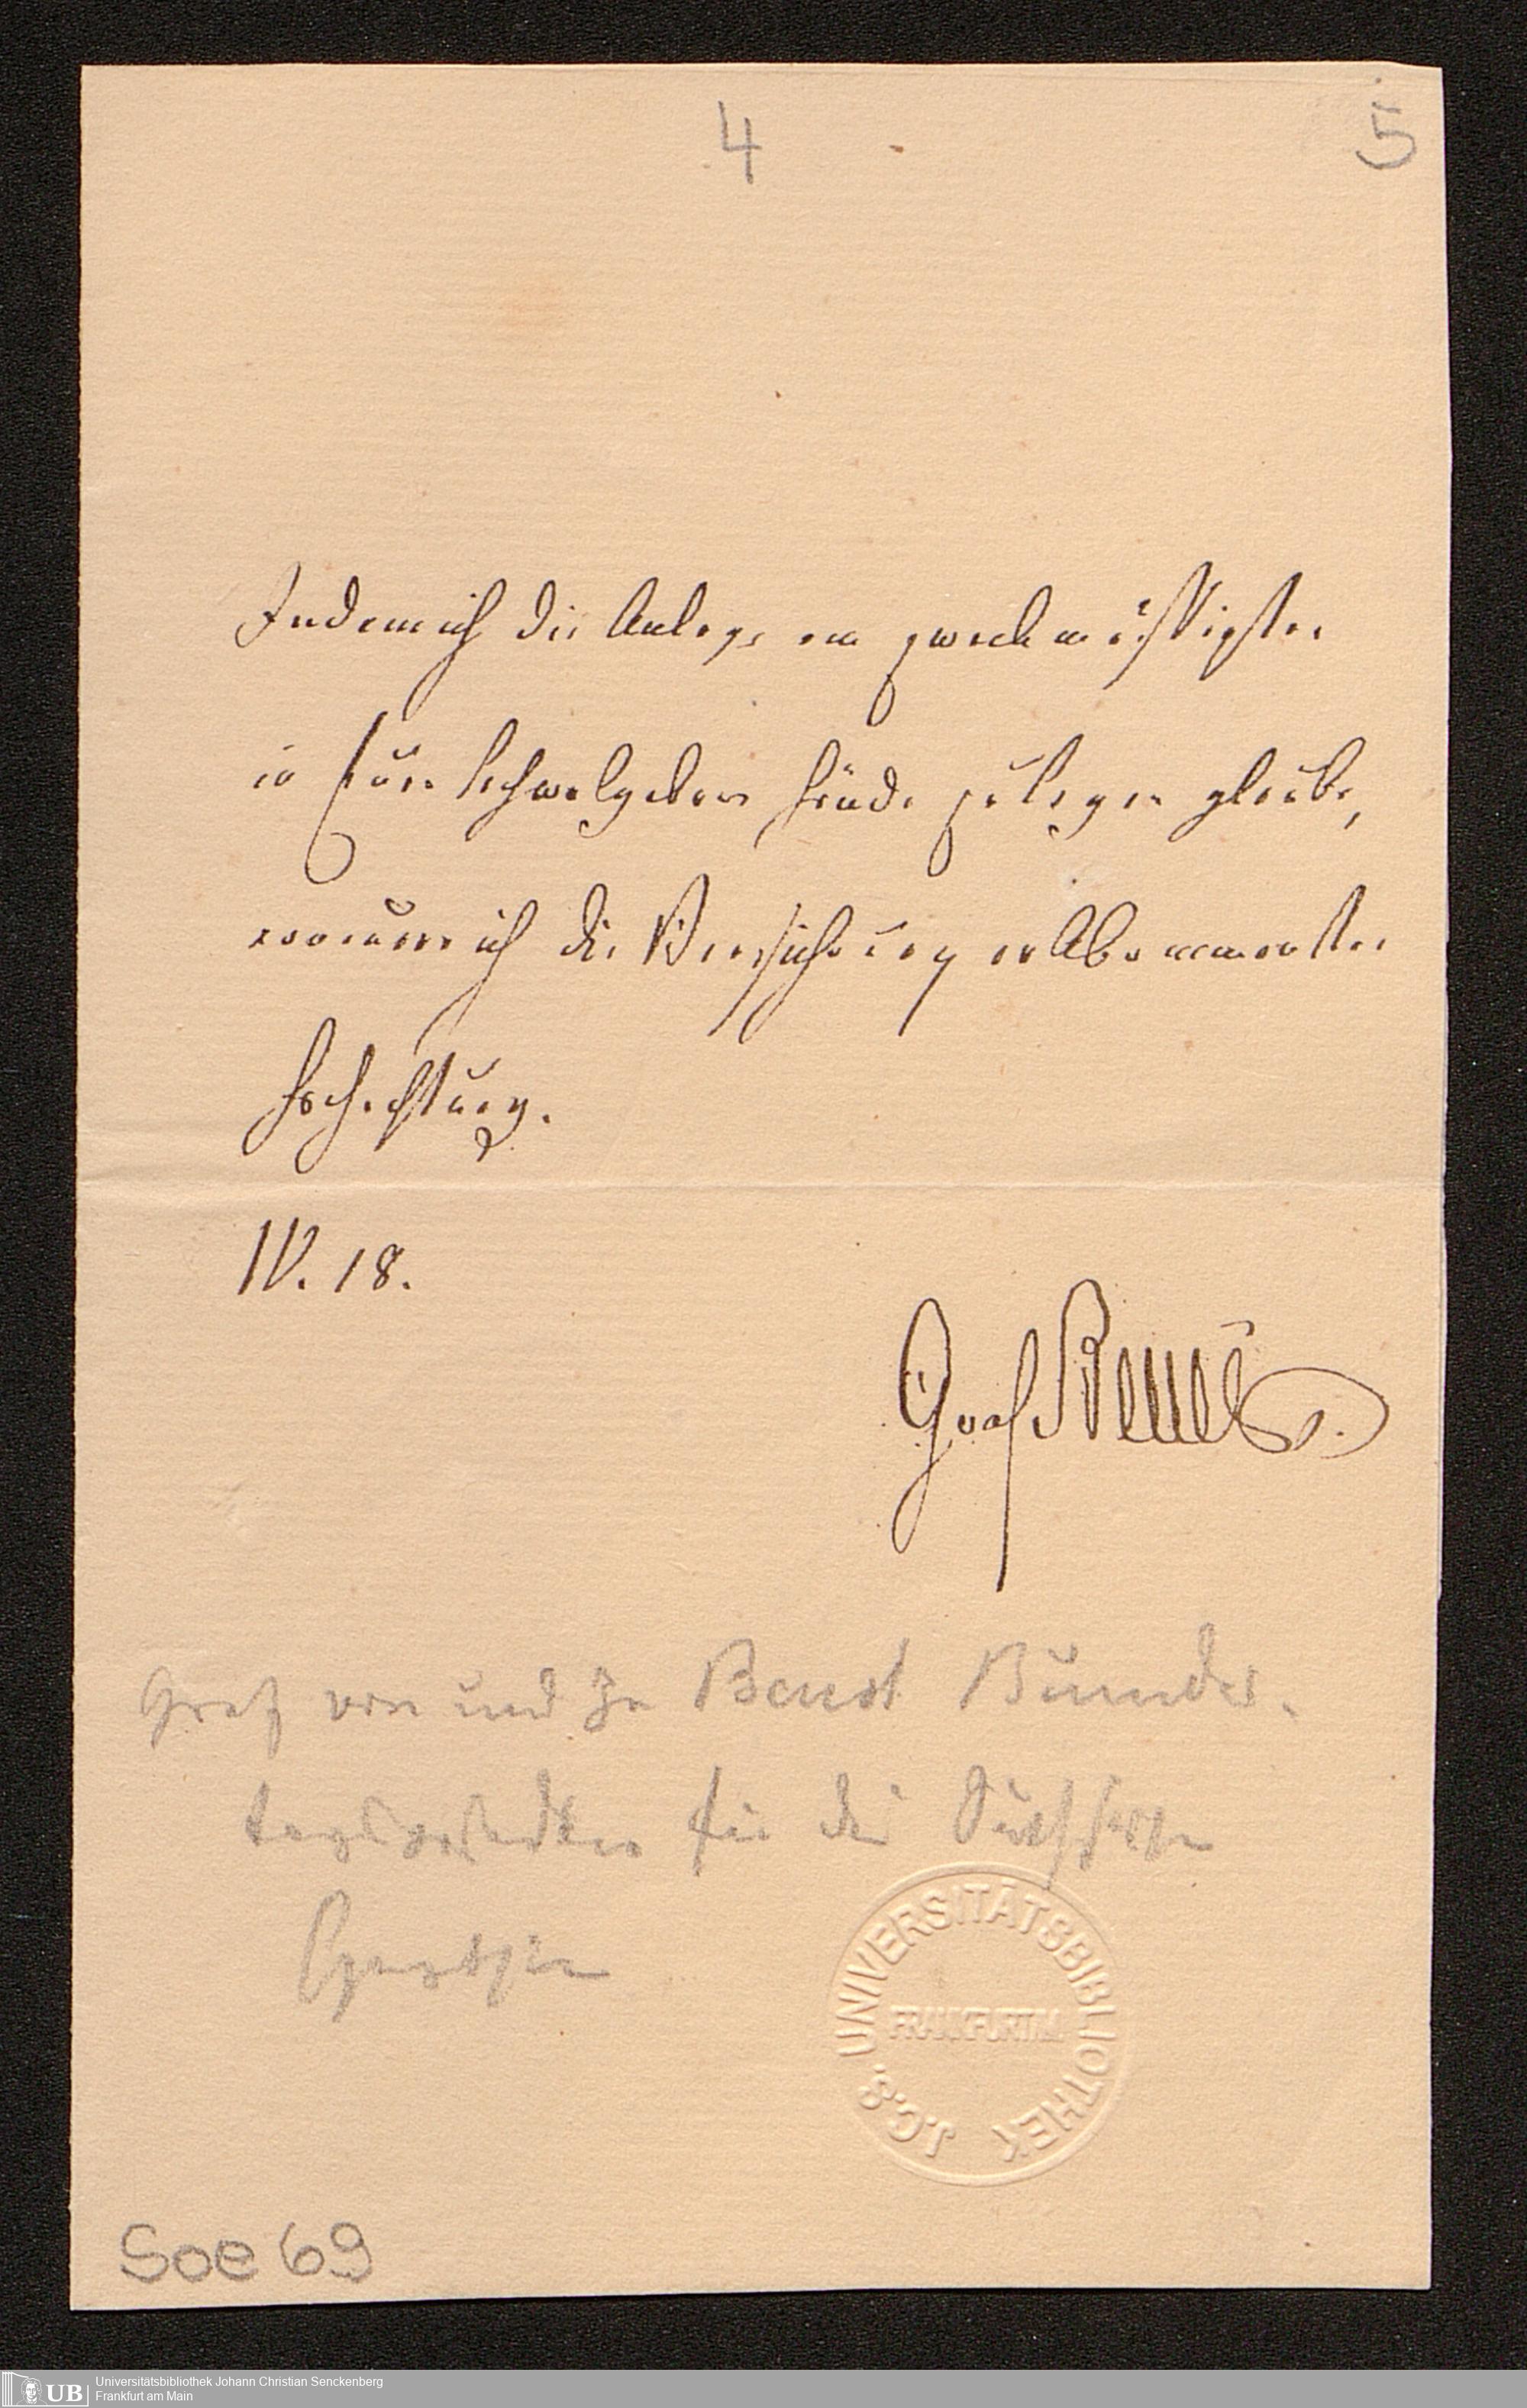 4
5
Indem ich die Anlage am zweckmässigsten
in Euer Hochwolgeboren Hände zu legen glaube,
erneuere ich die Versicherung vollkommenster
Hochachtung.
IV. 18.
Graf Beust
Graf von und zu Beust Bundes-
tagsgesandter für die Sächsischen
J.C.S. UNIVERSITÄTSBIBLIOTHEK
FRANKFURT/M.
Soe 69
UB
Universitätsbibliothek Johann Christian Senckenberg
Frankfurt am Main